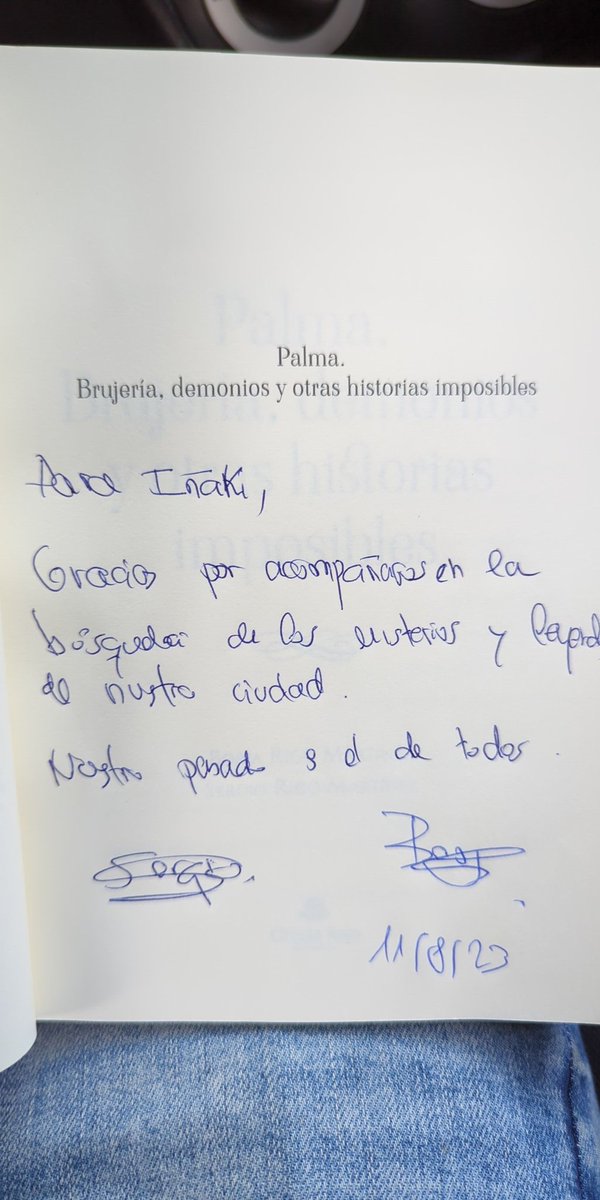 Palma.
Brujería, demonios y otras historias imposibles
Para Iñaki,
Gracias por acompañarnos en la
búsqueda de los misterios y leyend
de nustro ciudad.
Nustro pasado s el de todos.
11/8/23